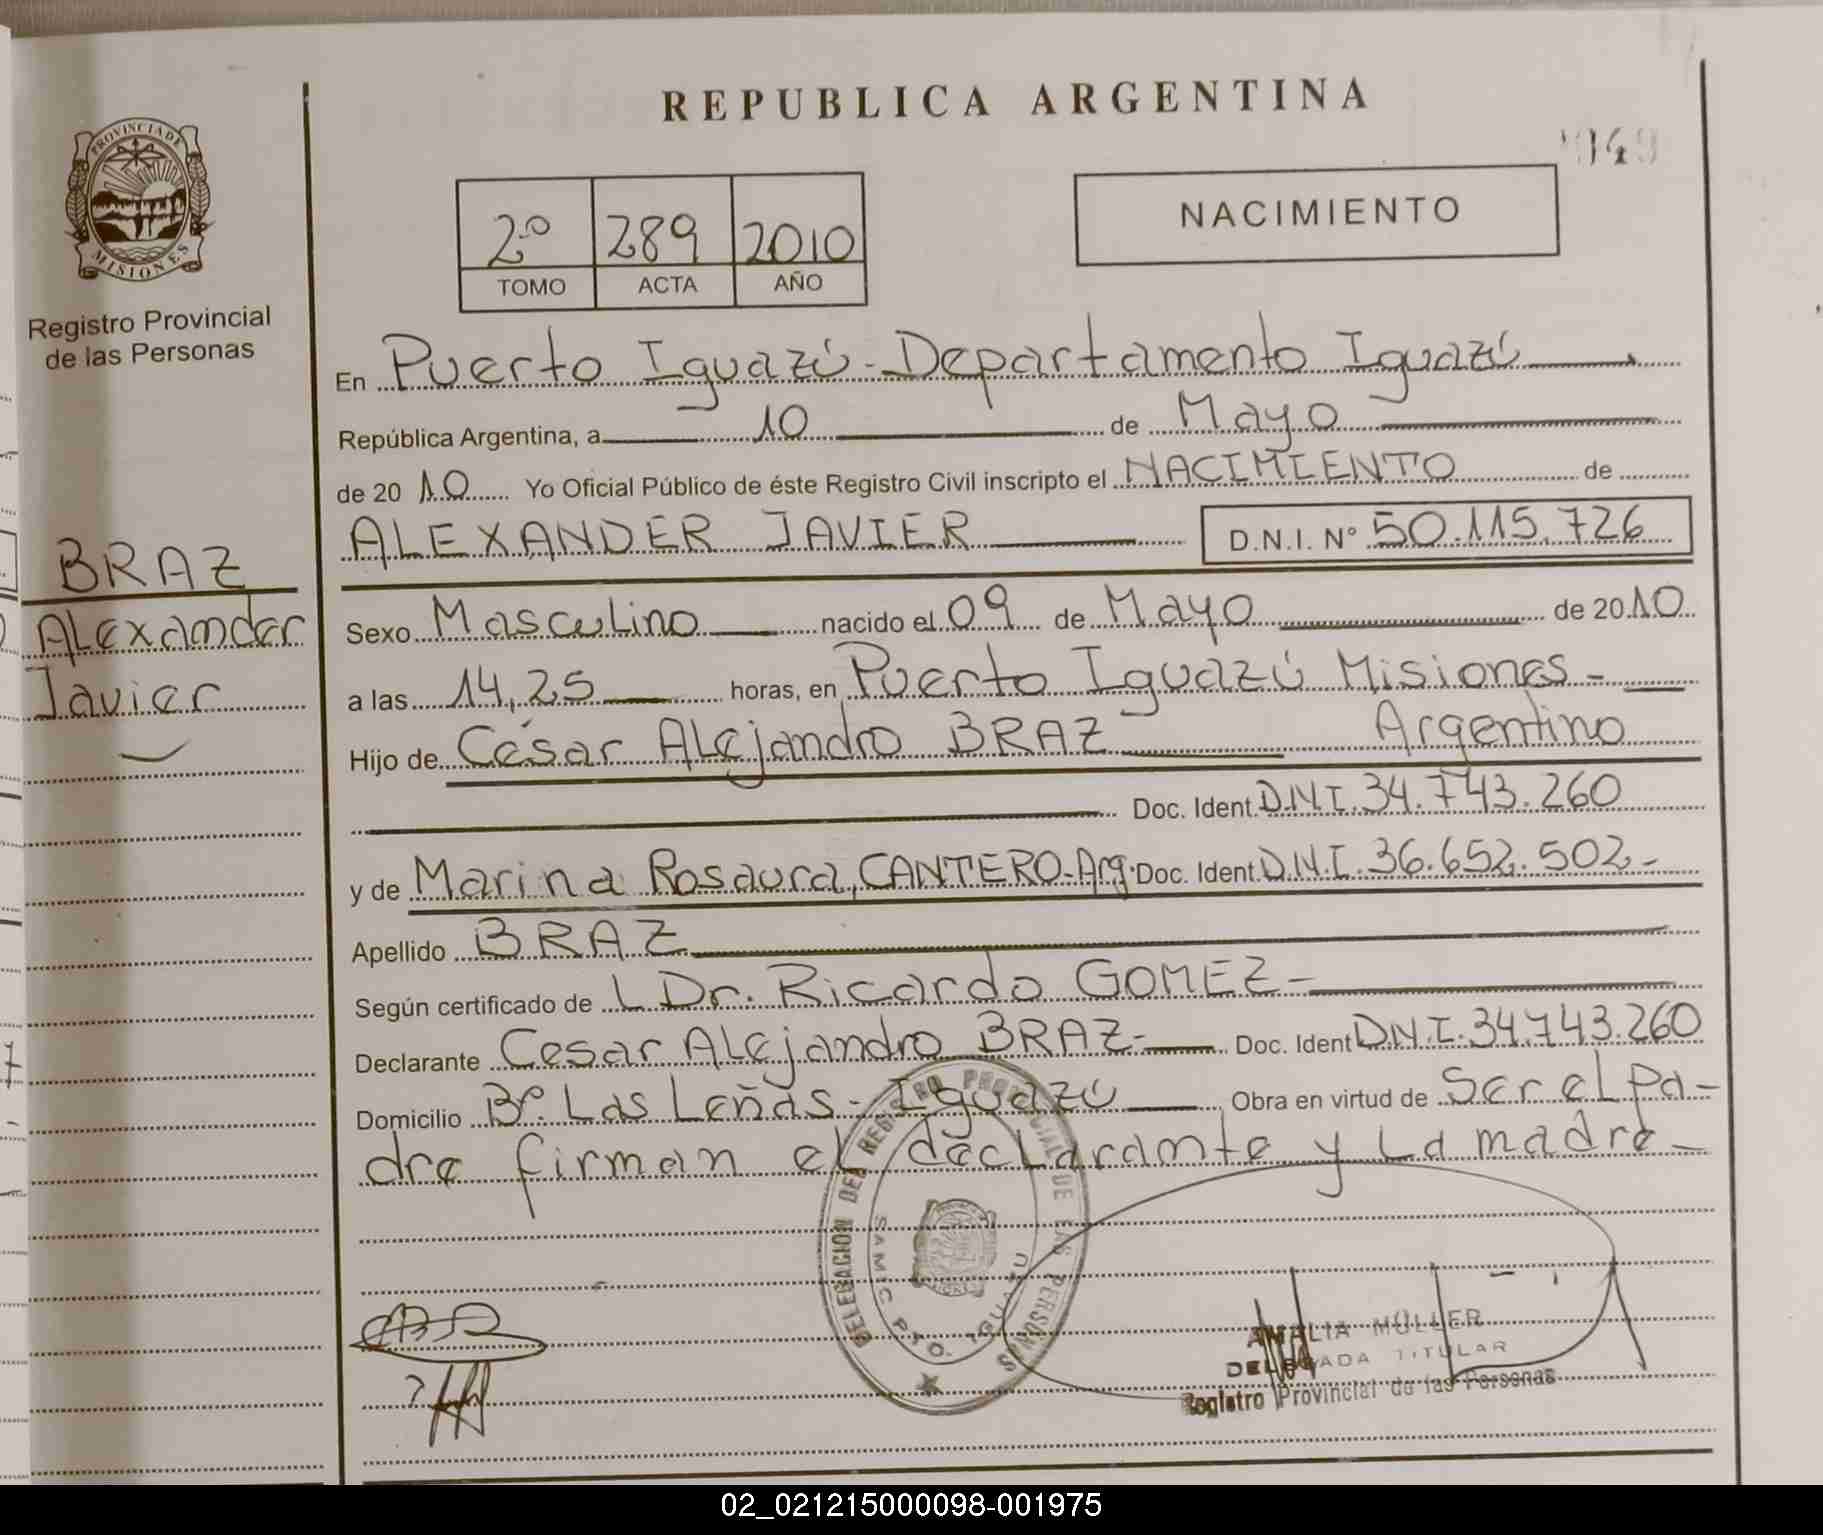 REPUBLICA ARGENTINA
PROVINCIA DE MISIONES
Registro Provincial
de las Personas
2º 289 2010
TOMO ACTA AÑO
NACIMIENTO
En Puerto Iguazú - Departamento Iguazú
República Argentina, a 10 de Mayo
de 20 10 Yo Oficial Público de éste Registro Civil inscripto el NACIMIENTO de
ALEXANDER JAVIER D.N.I. Nº 50.115.726
BRAZ
Alexander
Javier
Sexo Masculino nacido el 09 de Mayo de 20 10
a las 14,25 horas, en Puerto Iguazú Misiones -
Hijo de César Alejandro BRAZ Argentino
Doc. Ident. D.N.I. 34.743.260
y de Marina Rosaura, CANTERO - Arg. Doc. Ident. D.N.I. 36.652.502 -
Apellido BRAZ
Según certificado de L Dr. Ricardo GOMEZ -
Declarante Cesar Alejandro BRAZ - Doc. Ident D.N.I. 34.743.260
Domicilio Bº. Las Leñas - Iguazú Obra en virtud de Ser el pa-
dre firman el declarante y la madre -
DELEGACION DEL REGISTRO PROVINCIAL DE LAS PERSONAS
SAMIC PTO. IGUAZU
AMALIA MÜLLER
DELEGADA TITULAR
Registro Provincial de las Personas
02_021215000098-001975